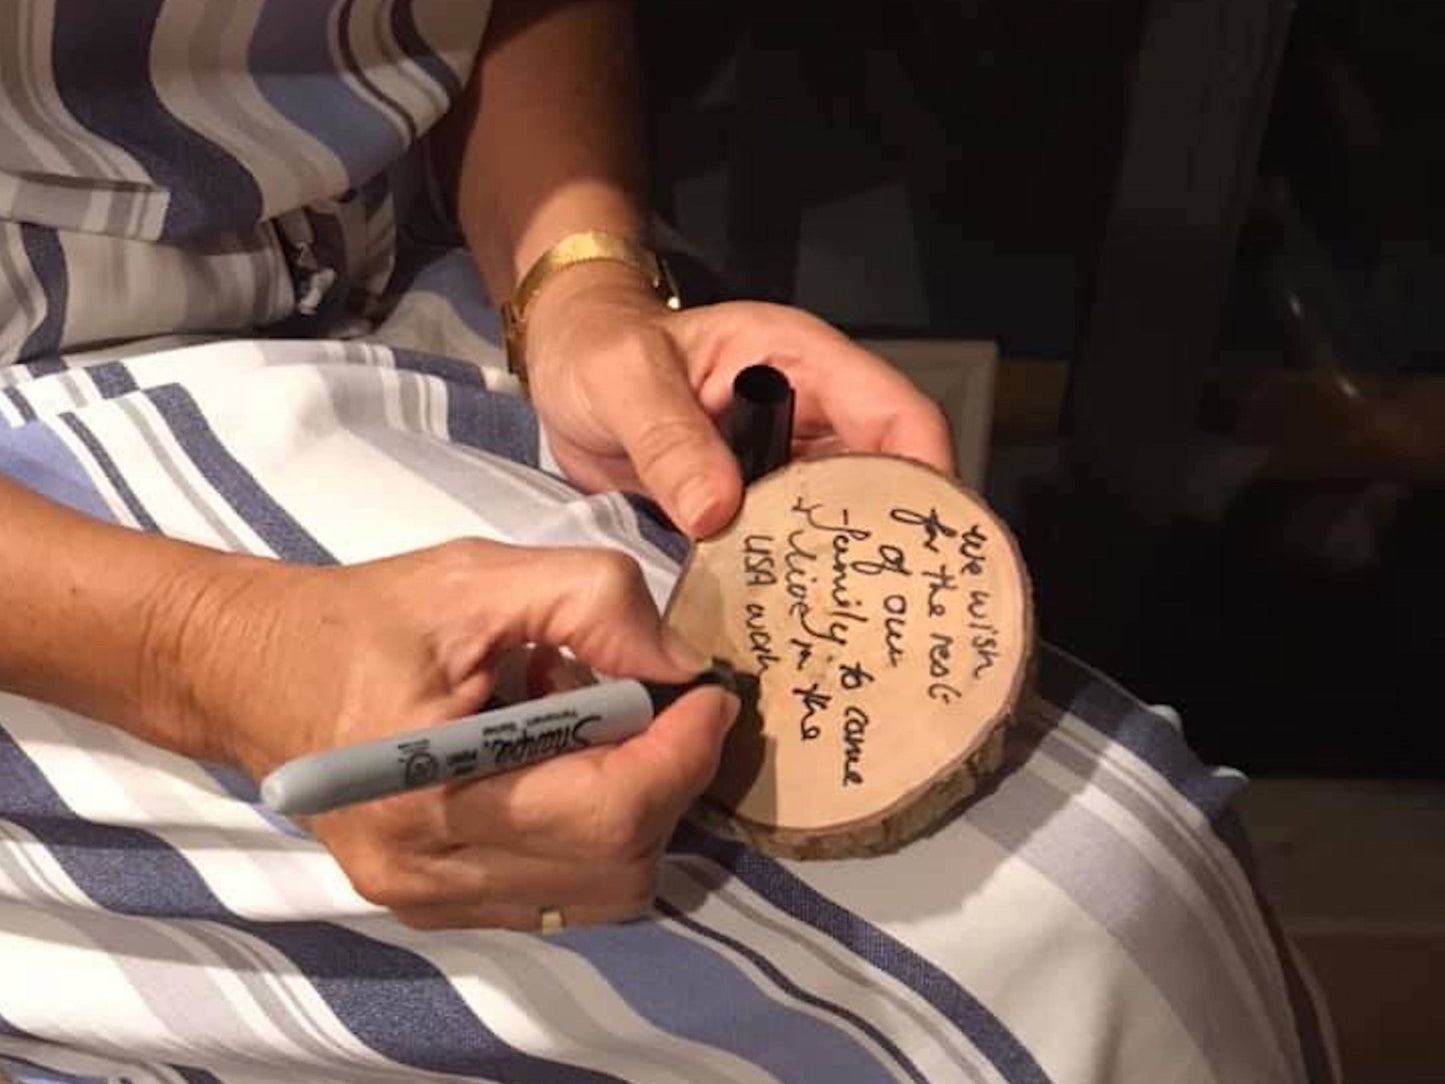 We wish
for the rest
of our
family to come
+ live in the
USA with
Sharpie